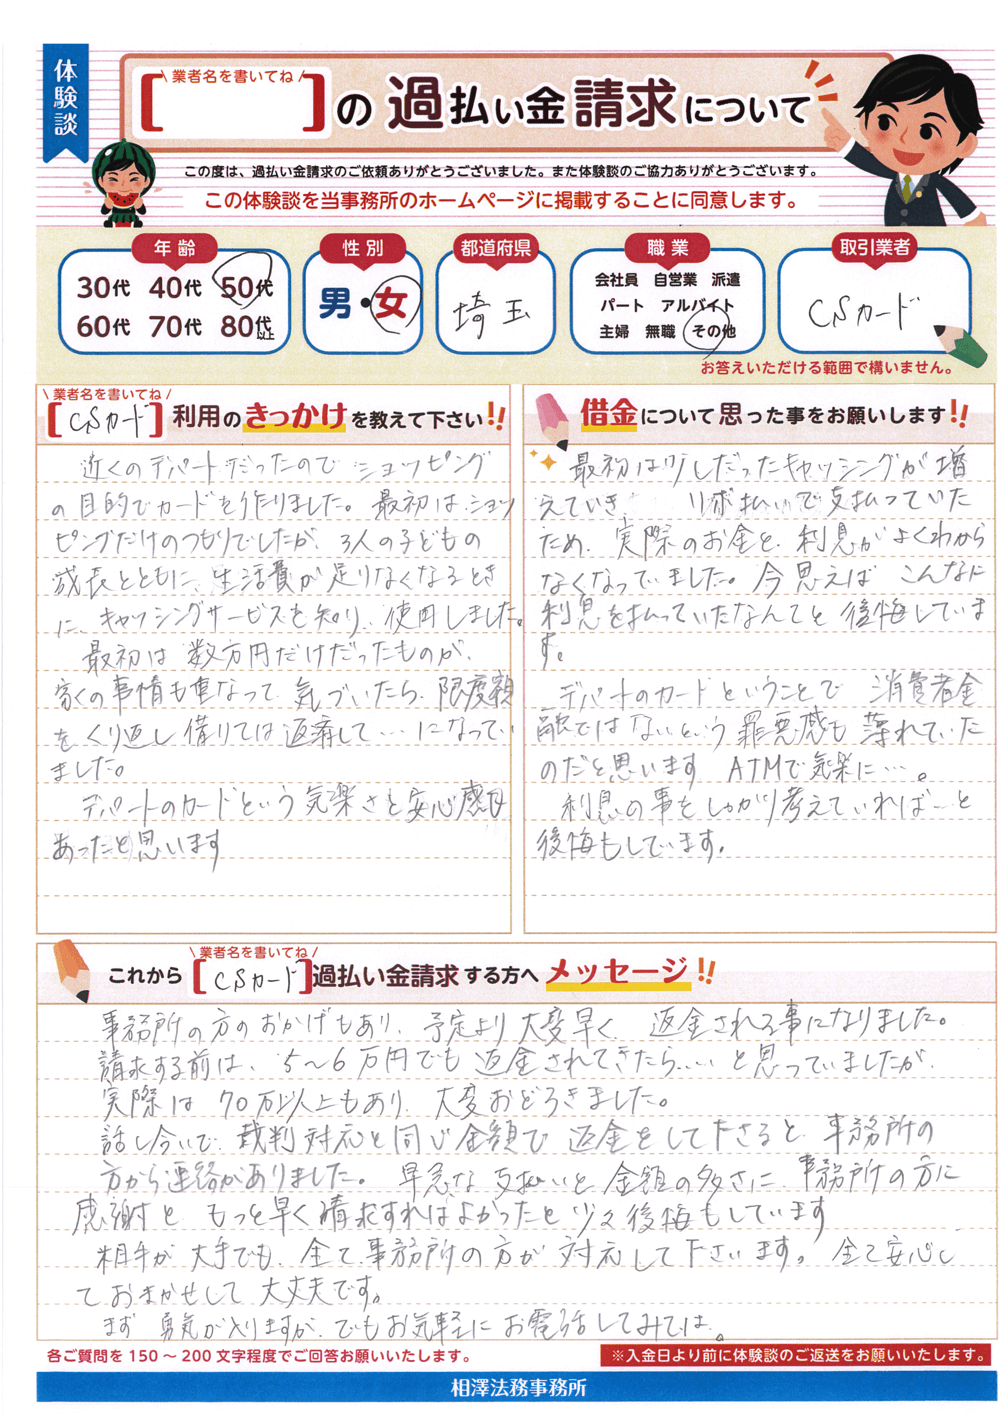 体験談
業者名を書いてね
[ ] の 過払い金請求について
この度は、過払い金請求のご依頼ありがとうございました。また体験談のご協力ありがとうございます。
この体験談を当事務所のホームページに掲載することに同意します。
年齢
30代 40代 50代
60代 70代 80代以上
性別
男・女
都道府県
埼玉
職業
会社員 自営業 派遣
パート アルバイト
主婦 無職 その他
取引業者
CSカード
お答えいただける範囲で構いません。
業者名を書いてね
[CSカード] 利用のきっかけを教えて下さい!!
近くのデパートだったので ショッピング
の目的でカードを作りました。最初は、ショッ
ピングだけのつもりでしたが、3人の子どもの
成長とともに、生活費が足りなくなるとき
に、キャッシングサービスを知り、使用しました。
最初は 数万円だけだったものが、
家の事情も重なって、気づいたら、限度額
をくり返し 借りては返済して…になってい
ました。
デパートのカードという気楽さと安心感も
あったと思います
借金について思った事をお願いします!!
最初は少しだったキャッシングが増
えていき、 リボ払いで支払っていた
ため、実際のお金と、利息がよくわから
なくなっていました。今思えば こんなに
利息を払っていたなんてと 後悔していま
す。
デパートのカードということで 消費者金
融ではないという罪悪感も 薄れていた
のだと思います ATMで気楽に…。
利息の事をしっかり考えていれば…と
後悔もしています。
業者名を書いてね
これから [CSカード] 過払い金請求する方へ メッセージ!!
事務所の方のおかげもあり、予定より大変早く、返金される事になりました。
請求する前は、5〜6万円でも返金されてきたら…… と思っていましたが、
実際は 70万以上もあり、大変おどろきました。
話し合いで、裁判対応と同じ金額で 返金をして下さると、事務所の
方から連絡がありました。早急な支払いと金額の多さに、事務所の方に
感謝と、もっと早く請求すればよかったと 少々後悔もしています
相手が 大手でも、全て事務所の方が対応して下さいます。全て安心し
ておまかせして大丈夫です。
まず 勇気が入りますが、でもお気軽にお電話してみては。
各ご質問を150〜200文字程度でご回答お願いいたします。
※入金日より前に体験談のご返送をお願いいたします。
相澤法務事務所